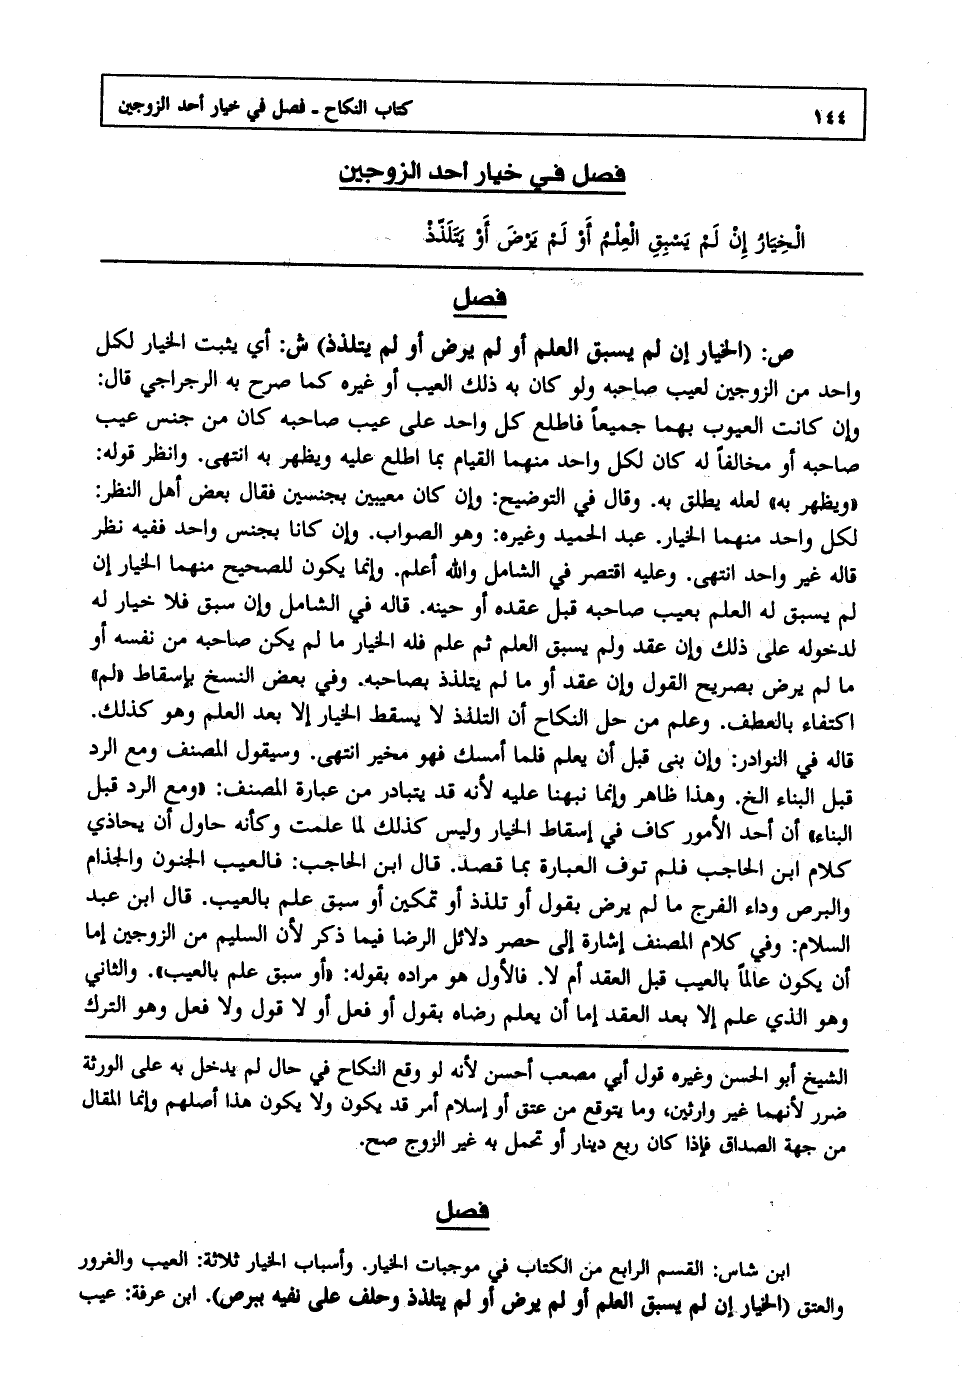 ١٤٤ كتاب النكاح ـ فصل في خيار أحد الزوجين
فصل في خيار أحد الزوجين
الْخِيَارُ إِنْ لَمْ يَسْبِقِ الْعِلْمُ أَوْ لَمْ يَرْضَ أَوْ يَتَلَذَّذْ
فصل
ص: (الخيار إن لم يسبق العلم أو لم يرض أو لم يتلذذ) ش: أي يثبت الخيار لكل
واحد من الزوجين لعيب صاحبه ولو كان به ذلك العيب أو غيره كما صرح به الرجراجي قال:
وإن كانت العيوب بهما جميعاً فاطلع كل واحد على عيب صاحبه كان من جنس عيب
صاحبه أو مخالفاً له كان لكل واحد منهما القيام بما اطلع عليه ويظهر به انتهى. وانظر قوله:
«ويظهر به» لعله يطلق به. وقال في التوضيح: وإن كان معيبين بجنسين فقال بعض أهل النظر:
لكل واحد منهما الخيار. عبد الحميد وغيره: وهو الصواب. وإن كانا بجنس واحد ففيه نظر
قاله غير واحد انتهى. وعليه اقتصر في الشامل والله أعلم. وإنما يكون للصحيح منهما الخيار إن
لم يسبق له العلم بعيب صاحبه قبل عقده أو حينه. قاله في الشامل وإن سبق فلا خيار له
لدخوله على ذلك وإن عقد ولم يسبق العلم ثم علم فله الخيار ما لم يكن صاحبه من نفسه أو
ما لم يرض بصريح القول وإن عقد أو ما لم يتلذذ بصاحبه. وفي بعض النسخ بإسقاط «لم»
اكتفاء بالعطف. وعلم من حل النكاح أن التلذذ لا يسقط الخيار إلا بعد العلم وهو كذلك.
قاله في النوادر: وإن بنى قبل أن يعلم فلما أمسك فهو مخير انتهى. وسيقول المصنف ومع الرد
قبل البناء الخ. وهذا ظاهر وإنما نبهنا عليه لأنه قد يتبادر من عبارة المصنف: «ومع الرد قبل
البناء» أن أحد الأمور كاف في إسقاط الخيار وليس كذلك لما علمت وكأنه حاول أن يحاذي
كلام ابن الحاجب فلم توف العبارة بما قصد. قال ابن الحاجب: فالعيب الجنون والجذام
والبرص وداء الفرج ما لم يرض بقول أو تلذذ أو تمكين أو سبق علم بالعيب. قال ابن عبد
السلام: وفي كلام المصنف إشارة إلى حصر دلائل الرضا فيما ذكر لأن السليم من الزوجين إما
أن يكون عالماً بالعيب قبل العقد أم لا. فالأول هو مراده بقوله: «أو سبق علم بالعيب». والثاني
وهو الذي علم إلا بعد العقد إما أن يعلم رضاه بقول أو فعل أو لا قول ولا فعل وهو الترك
الشيخ أبو الحسن وغيره قول أبي مصعب أحسن لأنه لو وقع النكاح في حال لم يدخل به على الورثة
ضرر لأنهما غير وارثين، وما يتوقع من عتق أو إسلام أمر قد يكون ولا يكون هذا أصلهم وإنما المقال
من جهة الصداق فإذا كان ربع دينار أو تحمل به غير الزوج صح.
فصل
ابن شاس: القسم الرابع من الكتاب في موجبات الخيار. وأسباب الخيار ثلاثة: العيب والغرور
والعتق (الخيار إن لم يسبق العلم أو لم يرض أو لم يتلذذ وحلف على نفيه ببرص). ابن عرفة: عيب